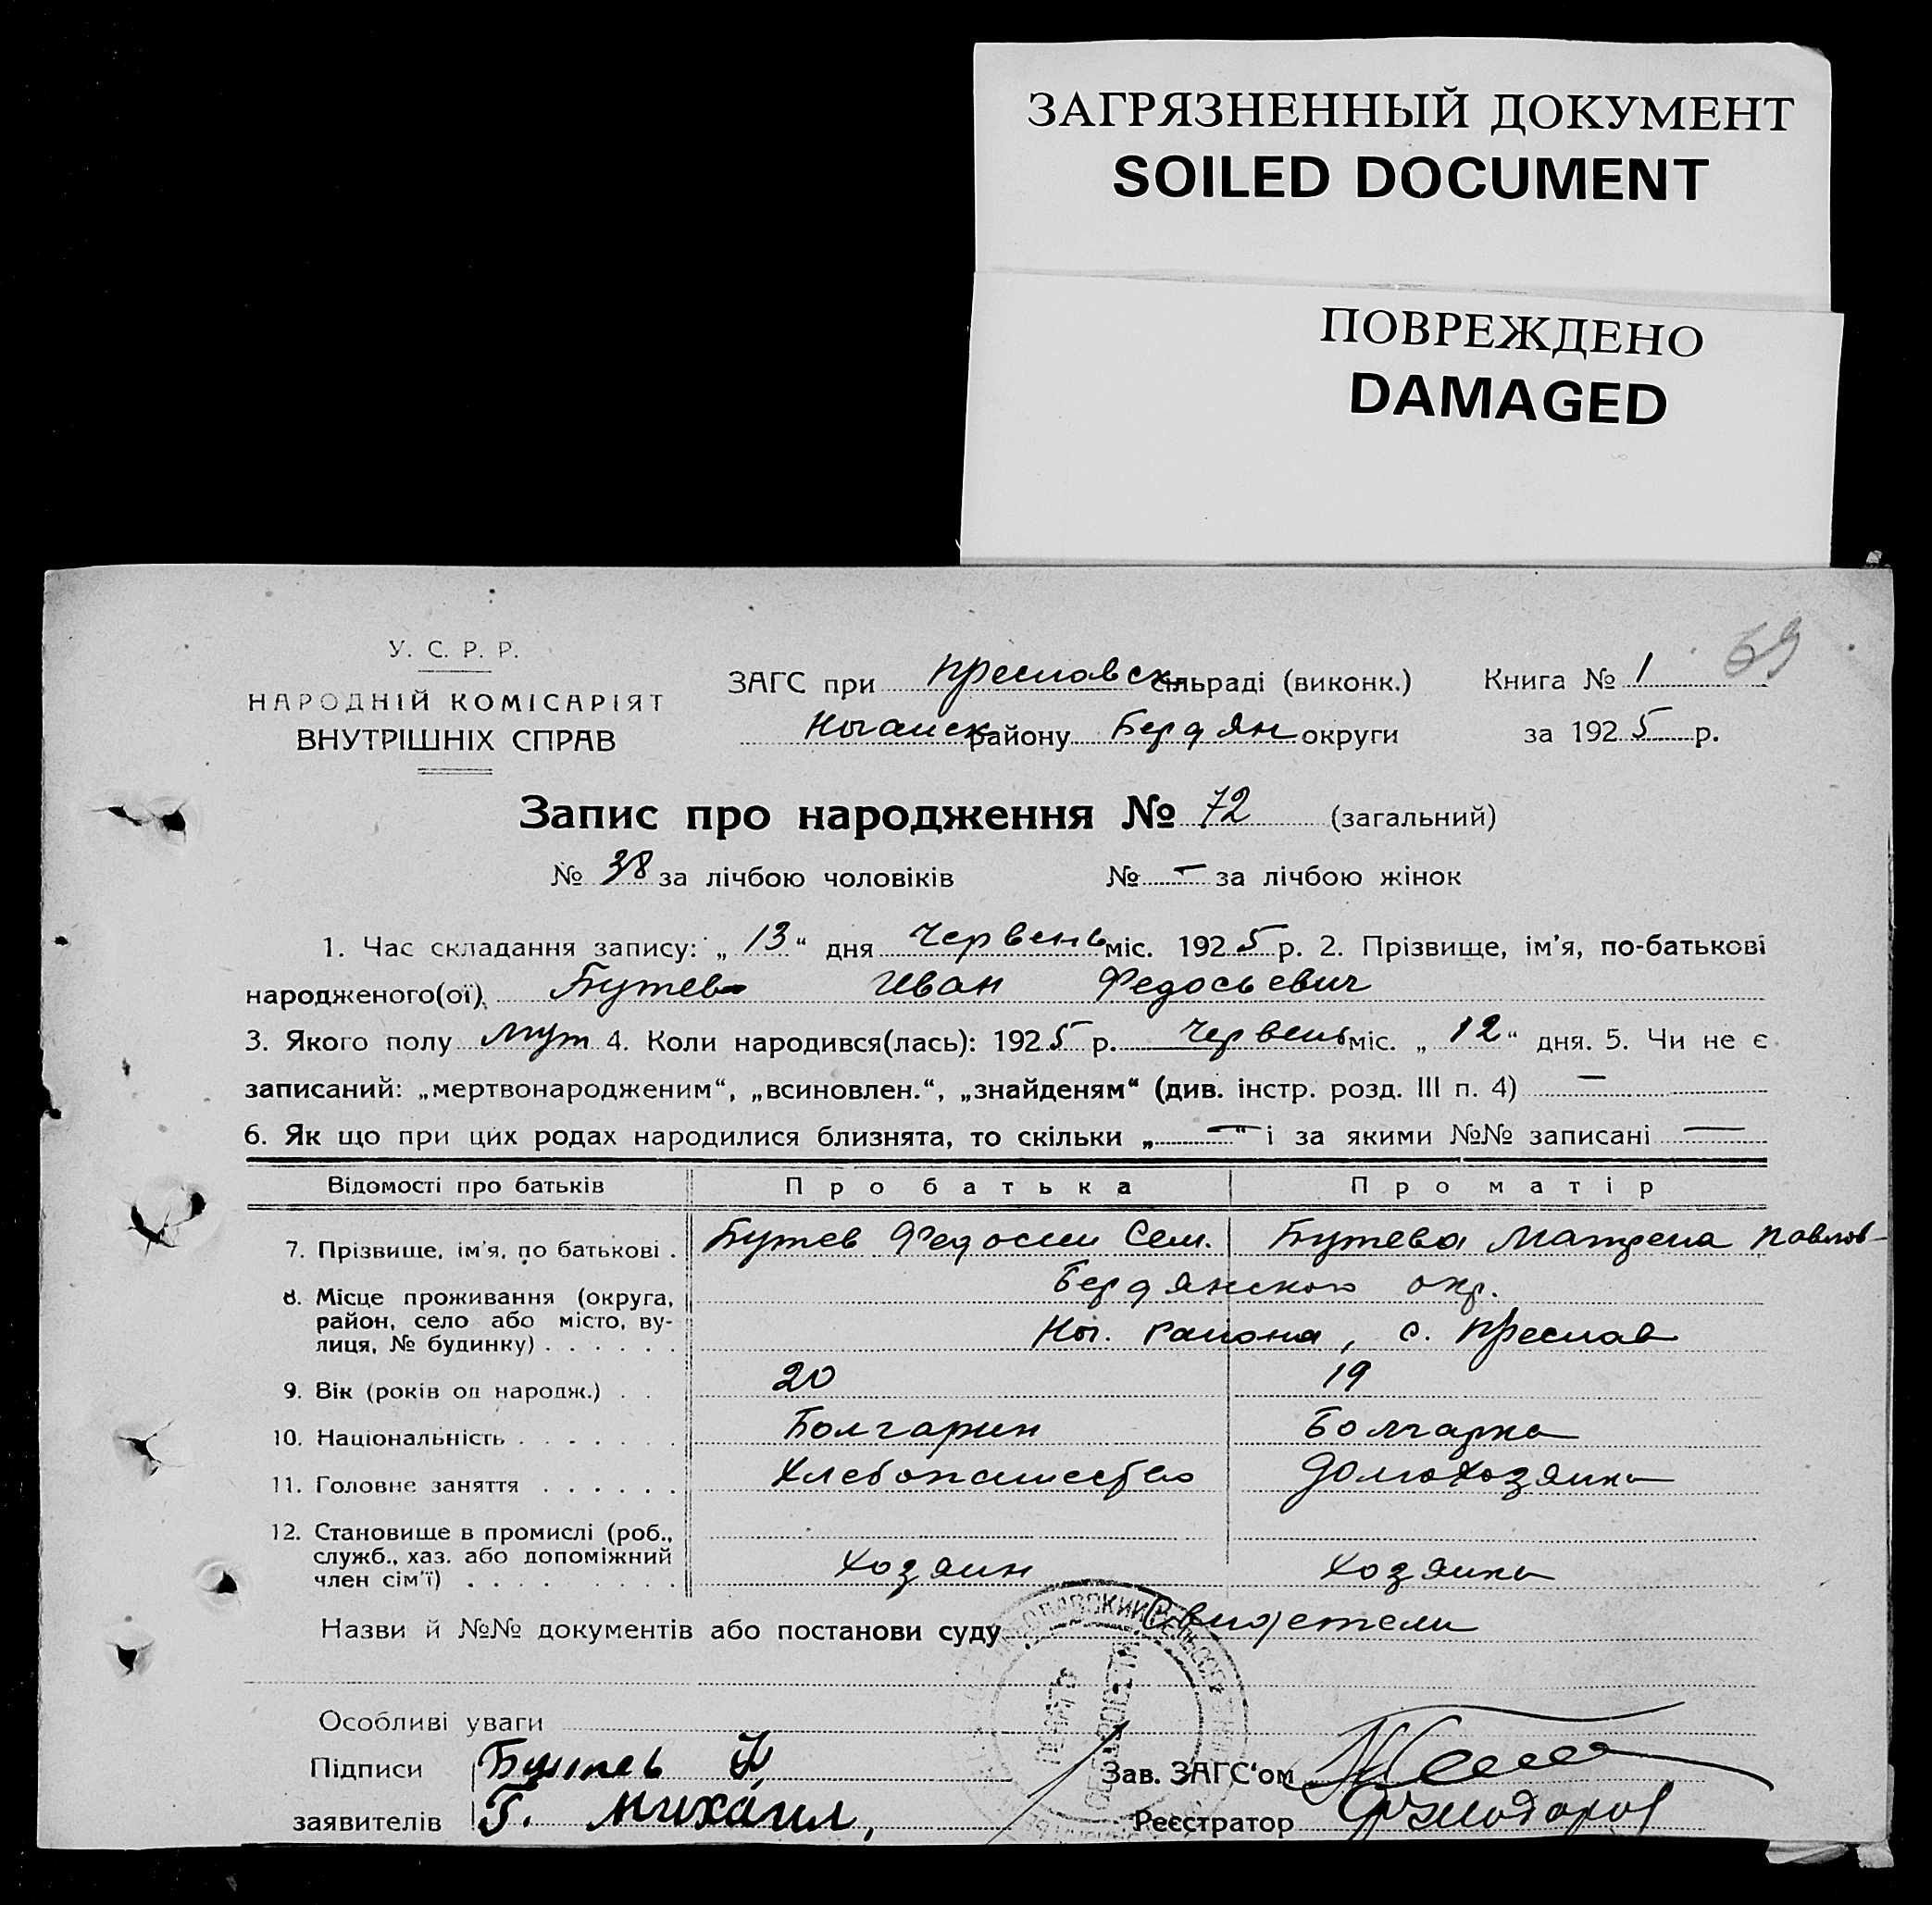 ЗАГРЯЗНЕННЫЙ ДОКУМЕНТ
SOILED DOCUMENT
ПОВРЕЖДЕНО
DAMAGED
69
У. С. Р. Р.
НАРОДНІЙ КОМІСАРІЯТ
ВНУТРІШНІХ СПРАВ
ЗАГС при Преславск сільраді (виконк.) Книга № 1
Ногайск району Бердян округи за 1925 р.
Запис про народження № 72 (загальний)
№ 38 за лічбою чоловіків № – за лічбою жінок
1. Час складання запису: „13“ дня Червень міс. 1925 р. 2. Прізвище, ім’я, по-батькові
народженого(ої) Бутев Иван Федосьевич
3. Якого полу муж 4. Коли народився(лась): 1925 р. Червень міс. „12“ дня. 5. Чи не є
записаний: „мертвонародженим“, „всиновлен.“, „знайденям“ (див. інстр. розд. III п. 4) —
6. Як що при цих родах народилися близнята, то скільки „—“ і за якими №№ записані —
Відомості про батьків Про батька Про матір
7. Прізвище, ім’я, по батькові . Бутев Федосий Сем. Бутева Матрена Павлов-
8. Місце проживання (округа, Бердянского окр.
район, село або місто, ву-
лиця, № будинку) . . . . . . Ног. района, с. Преслав
9. Вік (років од народж.) . . 20 19
10. Національність . . . . . . . Болгарин Болгарка
11. Головне заняття . . . . . . Хлебопашество Домохозяйка
12. Становище в промислі (роб.,
служб., хаз. або допоміжний
член сім’ї) . . . . . . . . Хозяин Хозяйка
Назви й №№ документів або постанови суду Свидетели
Особливі уваги
Підписи Бутев Ф Зав. ЗАГС‘ом
заявителів Г. Михаил, Реєстратор